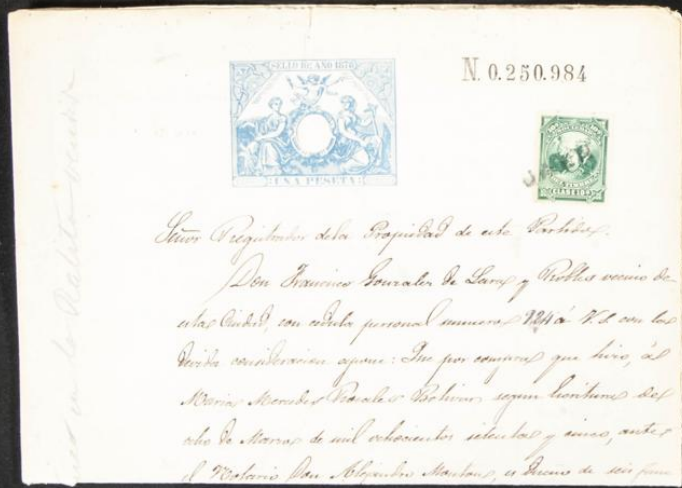 SELLO 10º AÑO 1876
N. 0.250.984
UNA PESETA
CLASE 10ª
Señor Registrador de la Propiedad de este Partido
Don Francisco Gonzalez de Lara y Robles vecino de
esta Ciudad, con cedula personal numero 124 á V.S. con la
devida consideracion espone: Que por compra que hizo, á
Maria Mercedes Rosales Bolivar segun escritura del
ocho de Marzo de mil ochocientos setenta y cinco, ante
el Notario Don Alejandro Monton, es dueño de seis